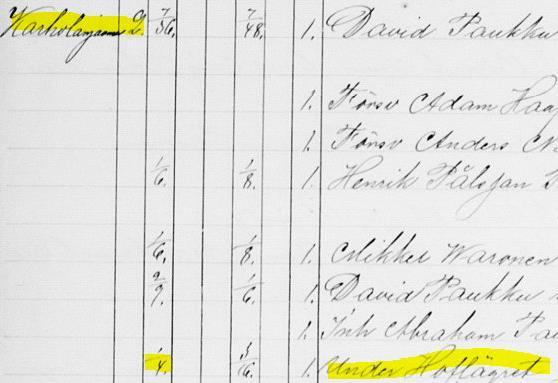 Karkolanjaama 2. 7/56. 7/48. 1. David Paukku
1. Försv Adam Haa
1. Försv Anders N
1/6. 1/8. 1. Henrik Pålsson
1/6. 1/8. 1. Mikkel Waronen
2/9. 1/6. 1. David Paukku
1. Inh Abraham Pa
1/4. 3/16. 1. Under Hoflägret